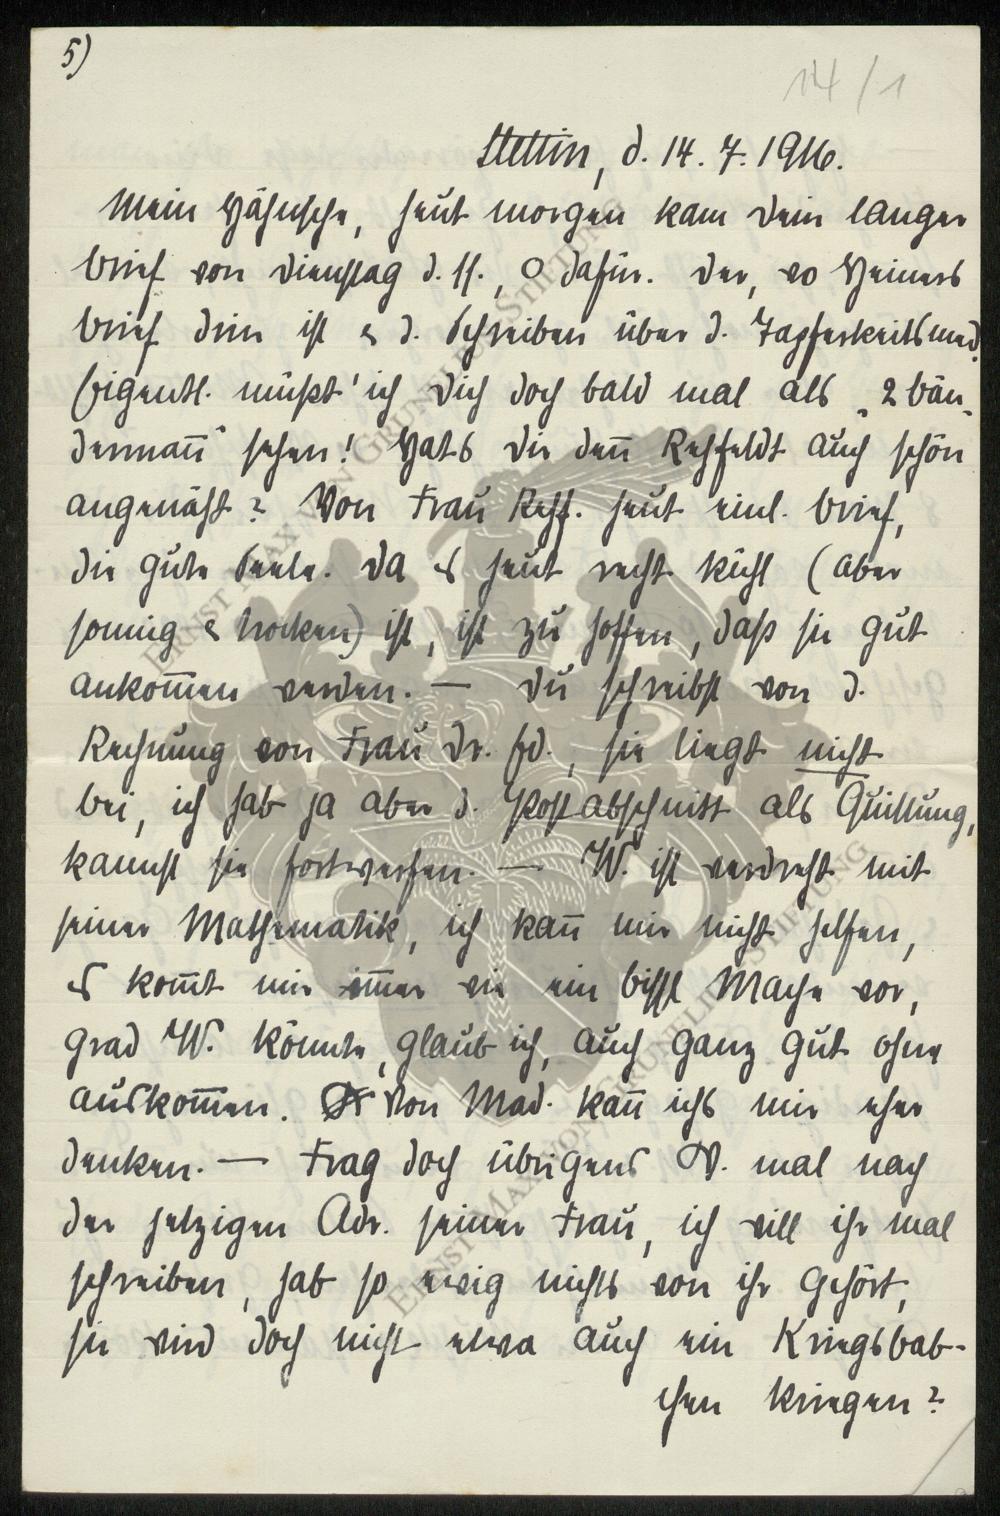 5)
14/1
Stettin, d. 14. 7. 1916.
Mein Hähnsche, heut morgen kam Dein langer
Brief von Dienstag d. 11., O dafür. Der, wo Heiners
Brief drin ist & d. Schreiben über d. Tapferkeitsmed.
Eigentl. müßt' ich Dich doch bald mal als „2 Bän-
dermann“ sehen! Hats Dir denn Rehfeldt auch schön
angenäht? Von Frau Rehf. heut einl. Brief,
die gute Seele. Da es heut recht kühl (aber
sonnig & trocken) ist, ist zu hoffen, daß sie gut
ankommen werden. — Du schreibst von d.
Rechnung von Frau Dr. Ed., sie liegt nicht
bei, ich hab ja aber d. Postabschnitt als Quittung,
kannst sie fortwerfen. — W. ist verdreht mit
seiner Mathematik, ich kann mir nicht helfen,
es kommt mir immer wie ein bissl Mache vor,
grad W. könnte, glaub ich, auch ganz gut ohne
auskommen. Von Mad. kann ichs mir eher
denken. — Frag doch übrigens W. mal nach
der jetzigen Adr. seiner Frau, ich will ihr mal
schreiben, hab so ewig nichts von ihr gehört,
sie wird doch nicht etwa auch ein Kriegsbab-
chen kriegen?
ERNST MAX VON GRUNELIUS-STIFTUNG
ERNST MAX VON GRUNELIUS-STIFTUNG